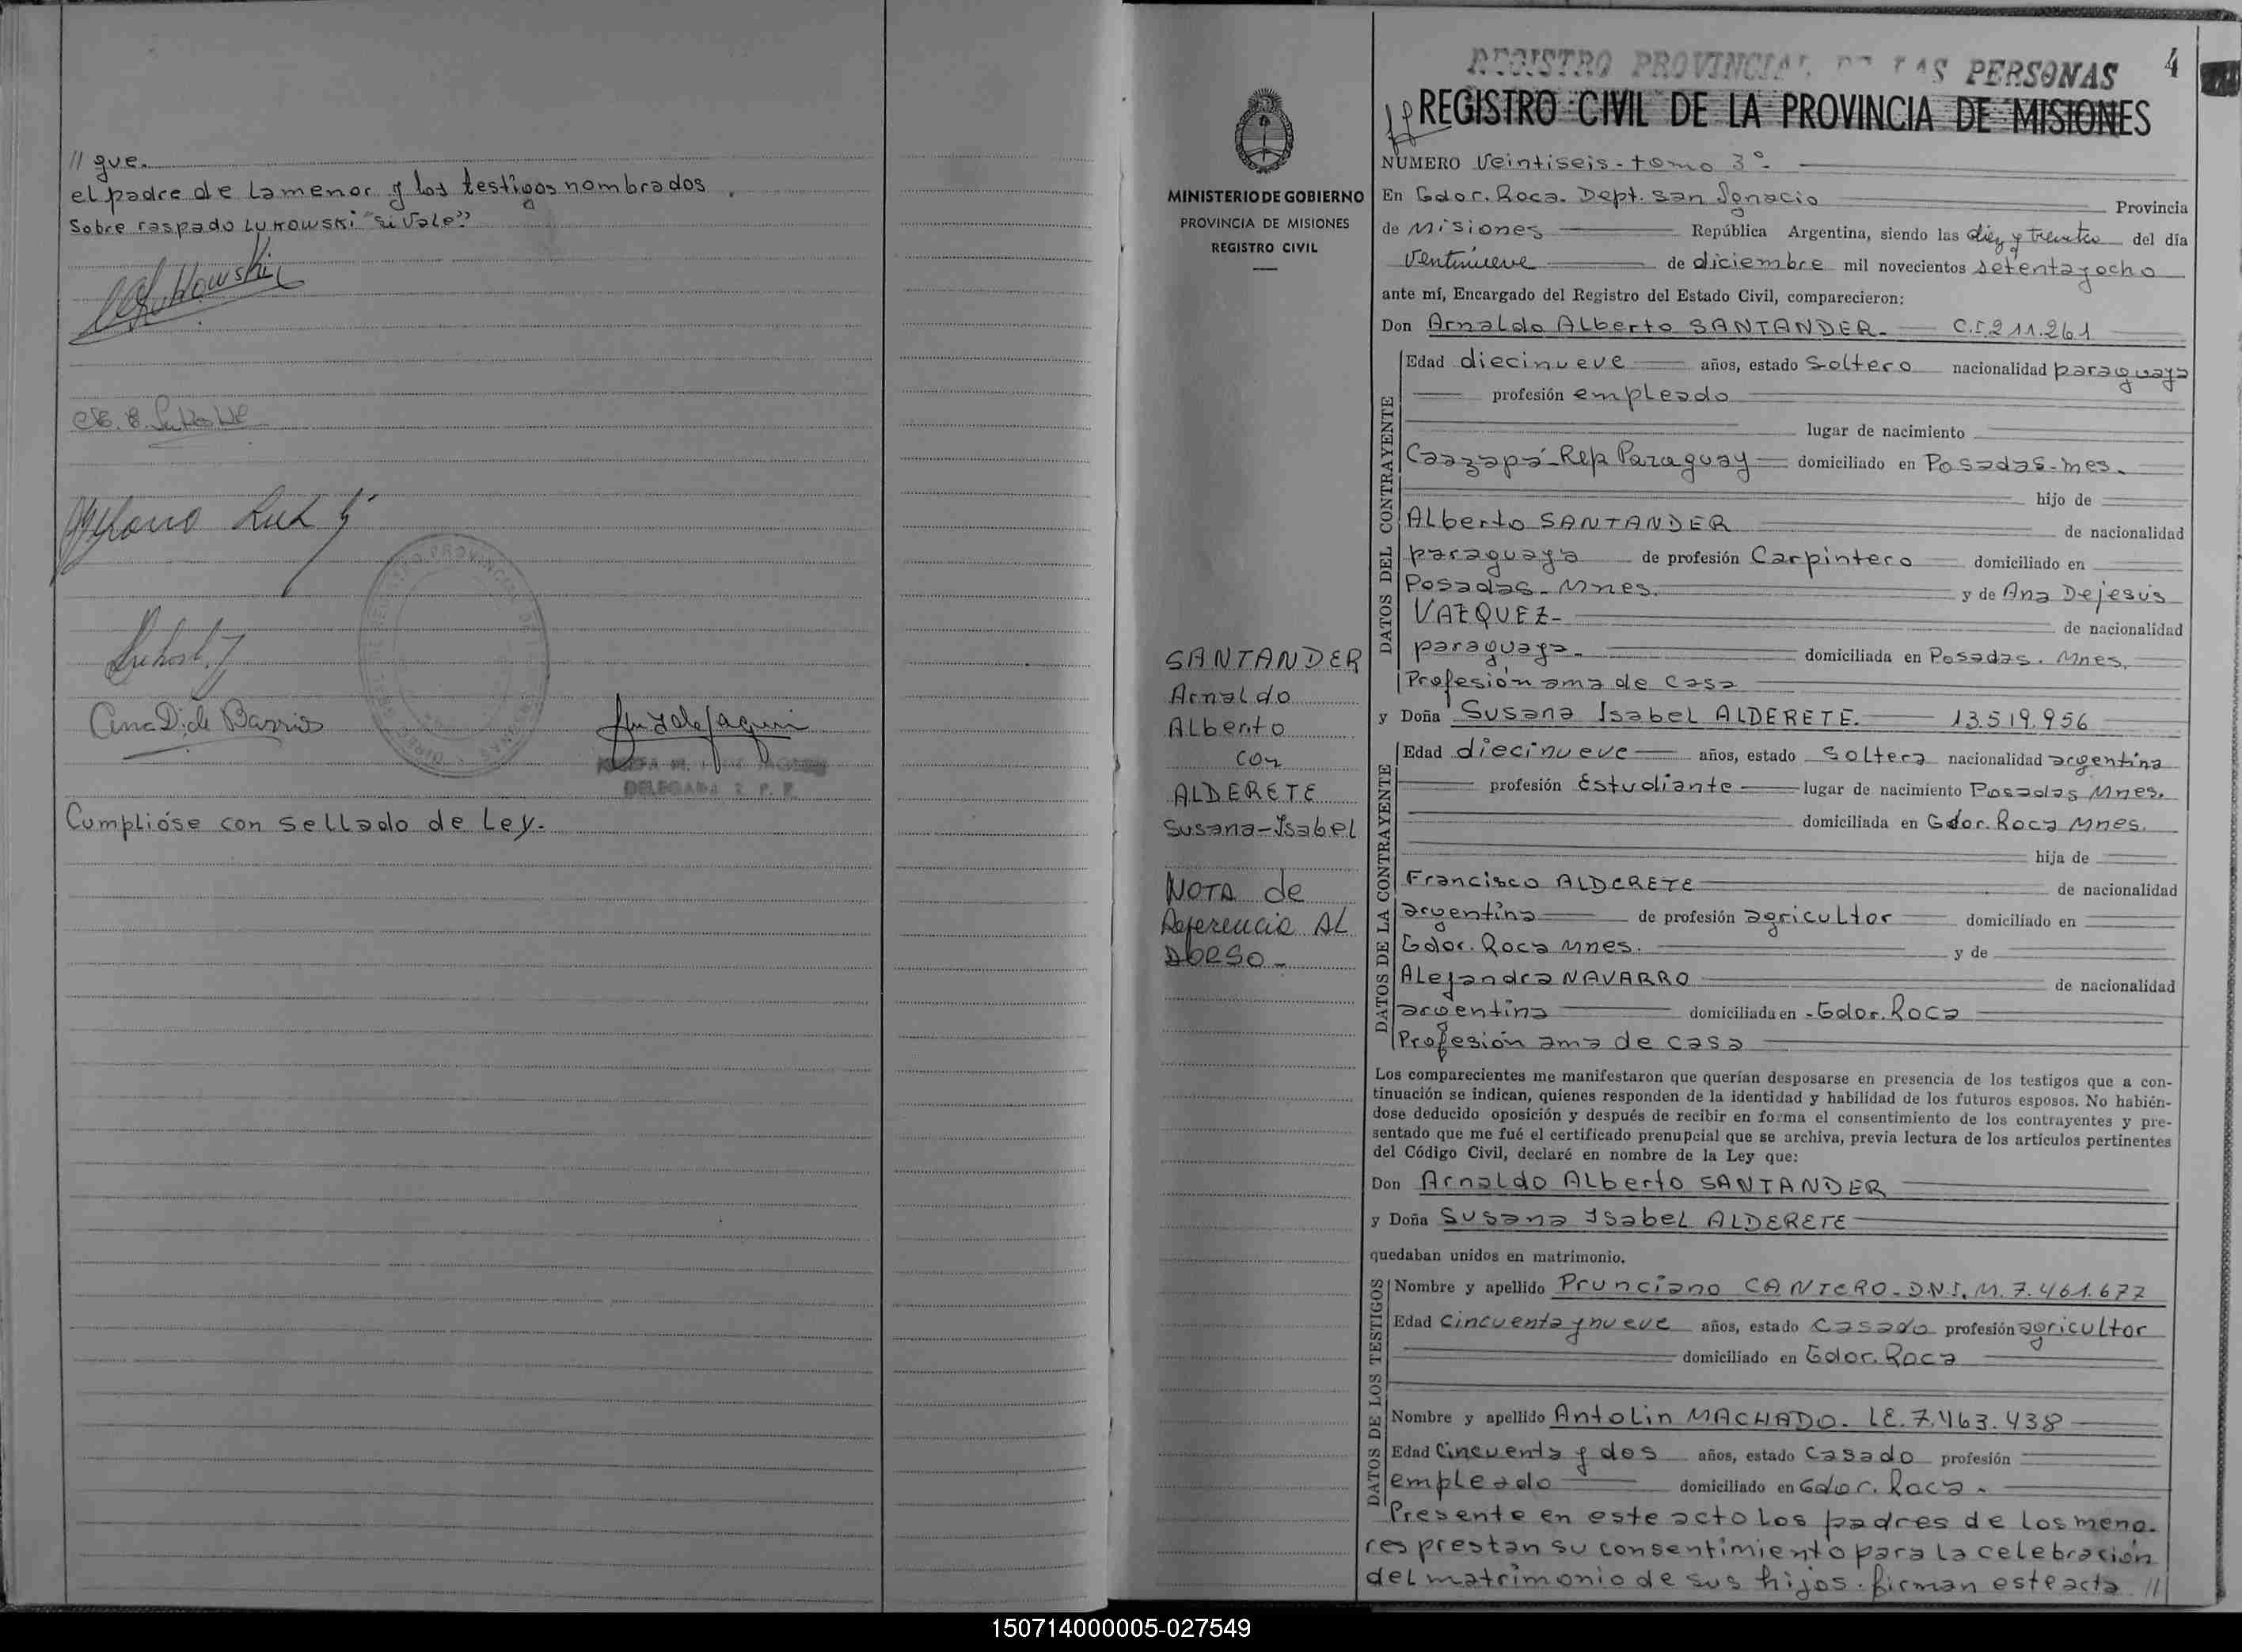 // gue.
el padre de la menor y los testigos nombrados.
Sobre raspado Lukowski "si vale"
Lukowski
Ana D. de Barrios
DELEGADA R. P. P.
Cumplióse con sellado de Ley.
REGISTRO PROVINCIAL DE LAS PERSONAS
4
REGISTRO CIVIL DE LA PROVINCIA DE MISIONES
MINISTERIO DE GOBIERNO
PROVINCIA DE MISIONES
REGISTRO CIVIL
SANTANDER
Arnaldo
Alberto
con
ALDERETE
Susana-Isabel
NOTA de
Referencia AL
DORSO-
NUMERO Veintiseis-tomo 3º-
En Gdor. Roca. Dept. San Ignacio Provincia
de Misiones República Argentina, siendo las diez y treinta del día
Ventinueve de diciembre mil novecientos setenta y ocho
ante mí, Encargado del Registro del Estado Civil, comparecieron:
Don Arnaldo Alberto SANTANDER- C.I. 211.261
DATOS DEL CONTRAYENTE
Edad diecinueve años, estado Soltero nacionalidad paraguaya
profesión empleado
lugar de nacimiento
Caazapá-Rep. Paraguay domiciliado en Posadas-Mes.
hijo de
Alberto SANTANDER de nacionalidad
paraguaya de profesión Carpintero domiciliado en
Posadas-Mnes. y de Ana Dejesús
VAZQUEZ- de nacionalidad
paraguaya- domiciliada en Posadas. Mnes.
Profesión ama de casa
y Doña Susana Isabel ALDERETE. 13.519.956
DATOS DE LA CONTRAYENTE
Edad diecinueve años, estado Soltera nacionalidad argentina
profesión Estudiante lugar de nacimiento Posadas Mnes.
domiciliada en Gdor. Roca Mnes.
hija de
Francisco ALDERETE de nacionalidad
argentina de profesión agricultor domiciliado en
Gdor. Roca Mnes. y de
Alejandra NAVARRO de nacionalidad
argentina domiciliada en -Gdor. Roca
Profesión ama de casa
Los comparecientes me manifestaron que querían desposarse en presencia de los testigos que a con-
tinuación se indican, quienes responden de la identidad y habilidad de los futuros esposos. No habién-
dose deducido oposición y después de recibir en forma el consentimiento de los contrayentes y pre-
sentado que me fué el certificado prenupcial que se archiva, previa lectura de los artículos pertinentes
del Código Civil, declaré en nombre de la Ley que:
Don Arnaldo Alberto SANTANDER
y Doña Susana Isabel ALDERETE
quedaban unidos en matrimonio.
DATOS DE LOS TESTIGOS
Nombre y apellido Prunciano CANTERO- D.N.I. M. 7.461.677
Edad Cincuenta y nueve años, estado Casado profesión agricultor
domiciliado en Gdor. Roca
Nombre y apellido Antolin MACHADO. LE. 7.463.438
Edad Cincuenta y dos años, estado Casado profesión
empleado domiciliado en Gdor. Roca.
Presente en este acto los padres de los meno-
res prestan su consentimiento para la celebración
del matrimonio de sus hijos. firman este acta //
150714000005-027549